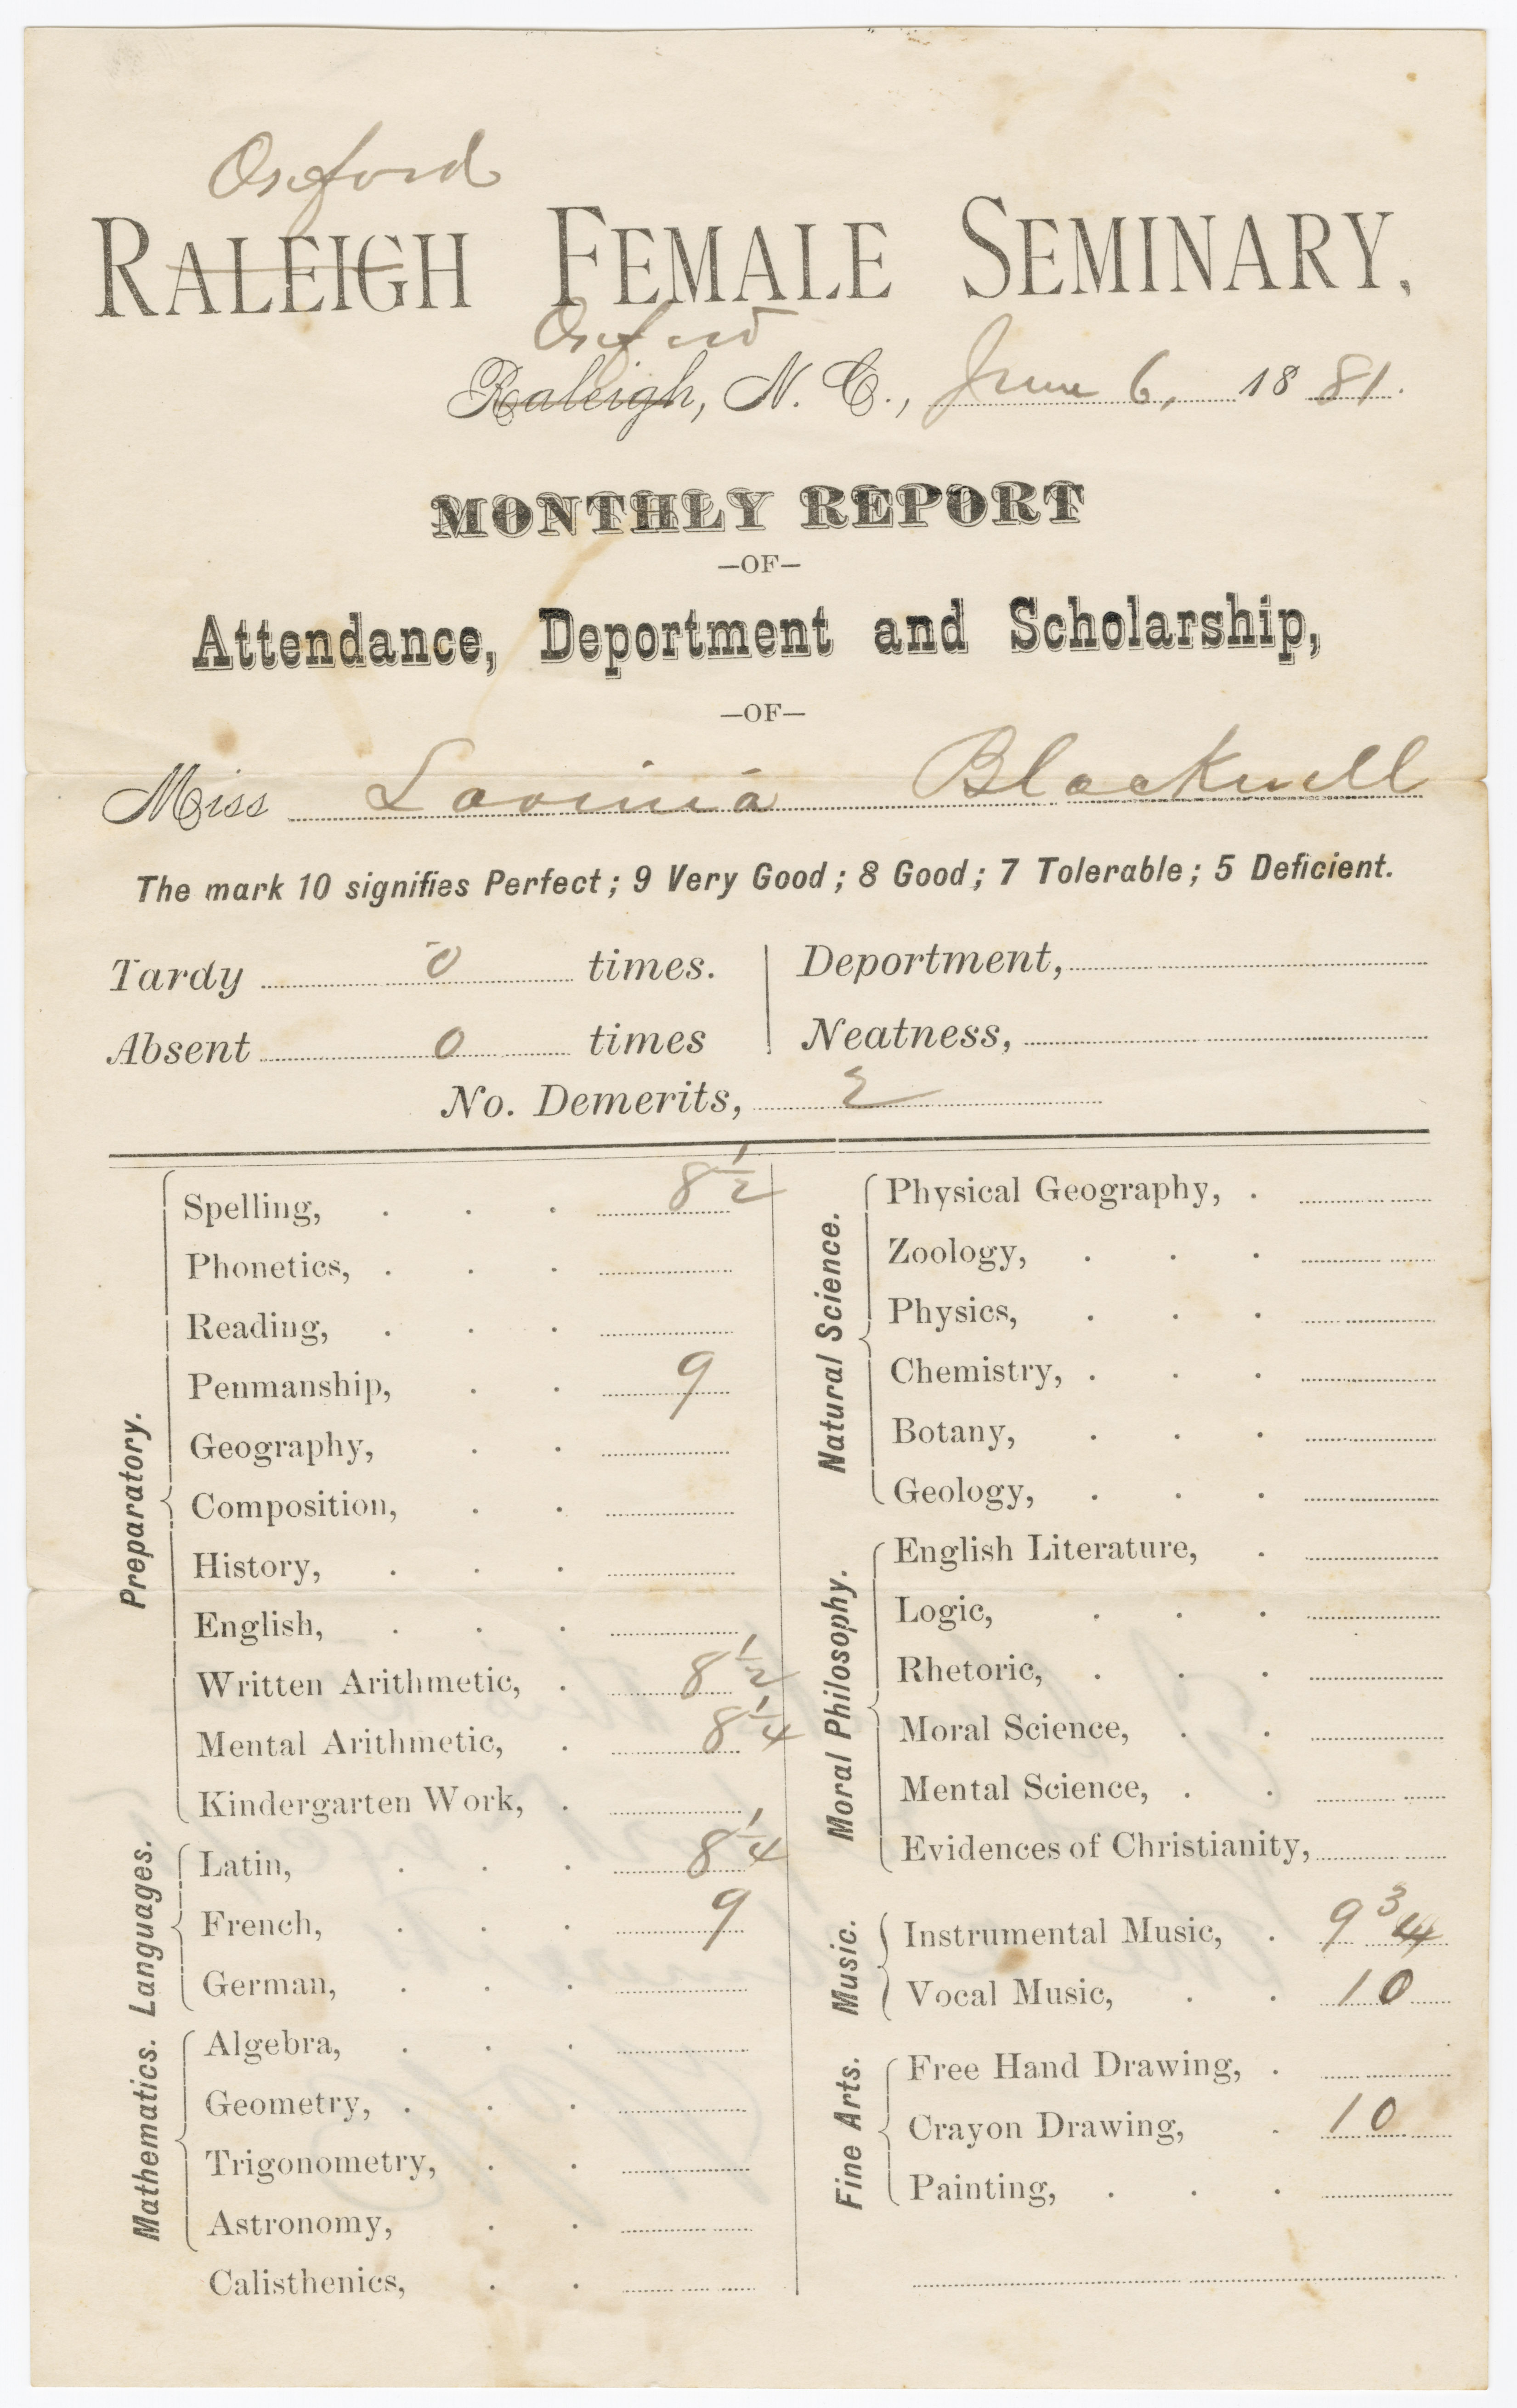 Oxford
RALEIGH FEMALE SEMINARY,
Oxford
Raleigh, N. C., June 6, 1881.
MONTHLY REPORT
—OF—
Attendance, Deportment and Scholarship,
—OF—
Miss Lavinia Blackwell
The mark 10 signifies Perfect; 9 Very Good; 8 Good; 7 Tolerable; 5 Deficient.
Tardy 0 times.
Absent 0 times
Deportment,
Neatness,
No. Demerits, 2
Preparatory.
Spelling, 8 1/2
Phonetics,
Reading,
Penmanship, 9
Geography,
Composition,
History,
English,
Written Arithmetic, 8 1/2
Mental Arithmetic, 8 1/4
Kindergarten Work,
Languages.
Latin, 8 1/4
French, 9
German,
Mathematics.
Algebra,
Geometry,
Trigonometry,
Astronomy,
Calisthenics,
Natural Science.
Physical Geography,
Zoology,
Physics,
Chemistry,
Botany,
Geology,
Moral Philosophy.
English Literature,
Logic,
Rhetoric,
Moral Science,
Mental Science,
Evidences of Christianity,
Music.
Instrumental Music, 9 3/4
Vocal Music, 10
Fine Arts.
Free Hand Drawing,
Crayon Drawing, 10
Painting,